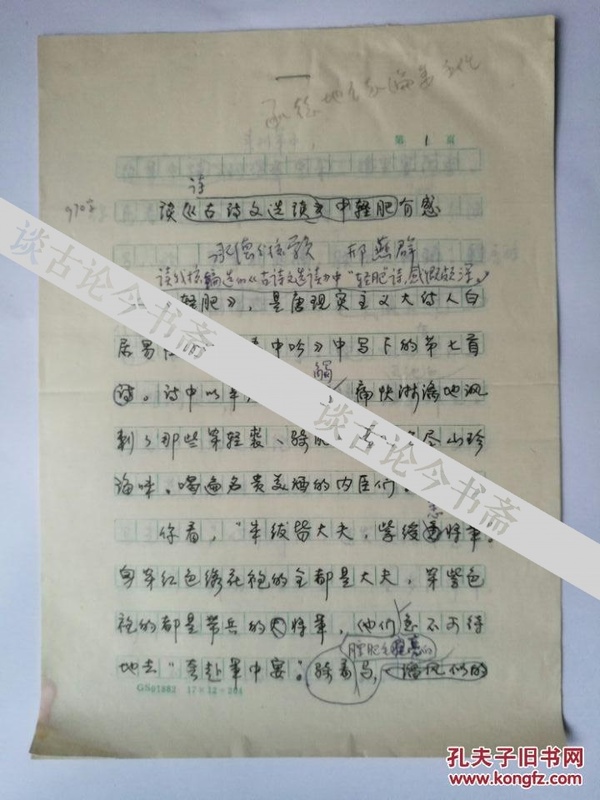 第 1 页
970字
诗
读《古诗文选读》中轻肥有感
承德分校 邢燕群
读我校编选的《古诗文选读》中“轻肥”诗,感慨颇深。
轻肥》,是唐现实主义大诗人白
居易 中吟》中写下的第七首
诗。诗中以 触 痛快淋漓地讽
刺了那些穿轻裘、骑肥 尽山珍
海味、喝遍名贵美酒的内臣们。
你看,“朱绂皆大夫,紫绶悉将军。
身穿红色绣花袍的全都是大夫,穿紫色
袍的都是带兵的将军,他们急不可待
地去“夸赴军中宴”。骑着 马,
膘肥毛 的
GN61882 17×12=204
谈古论今书斋
谈古论今书斋
谈古论今书斋
孔夫子旧书网
www.kongfz.com